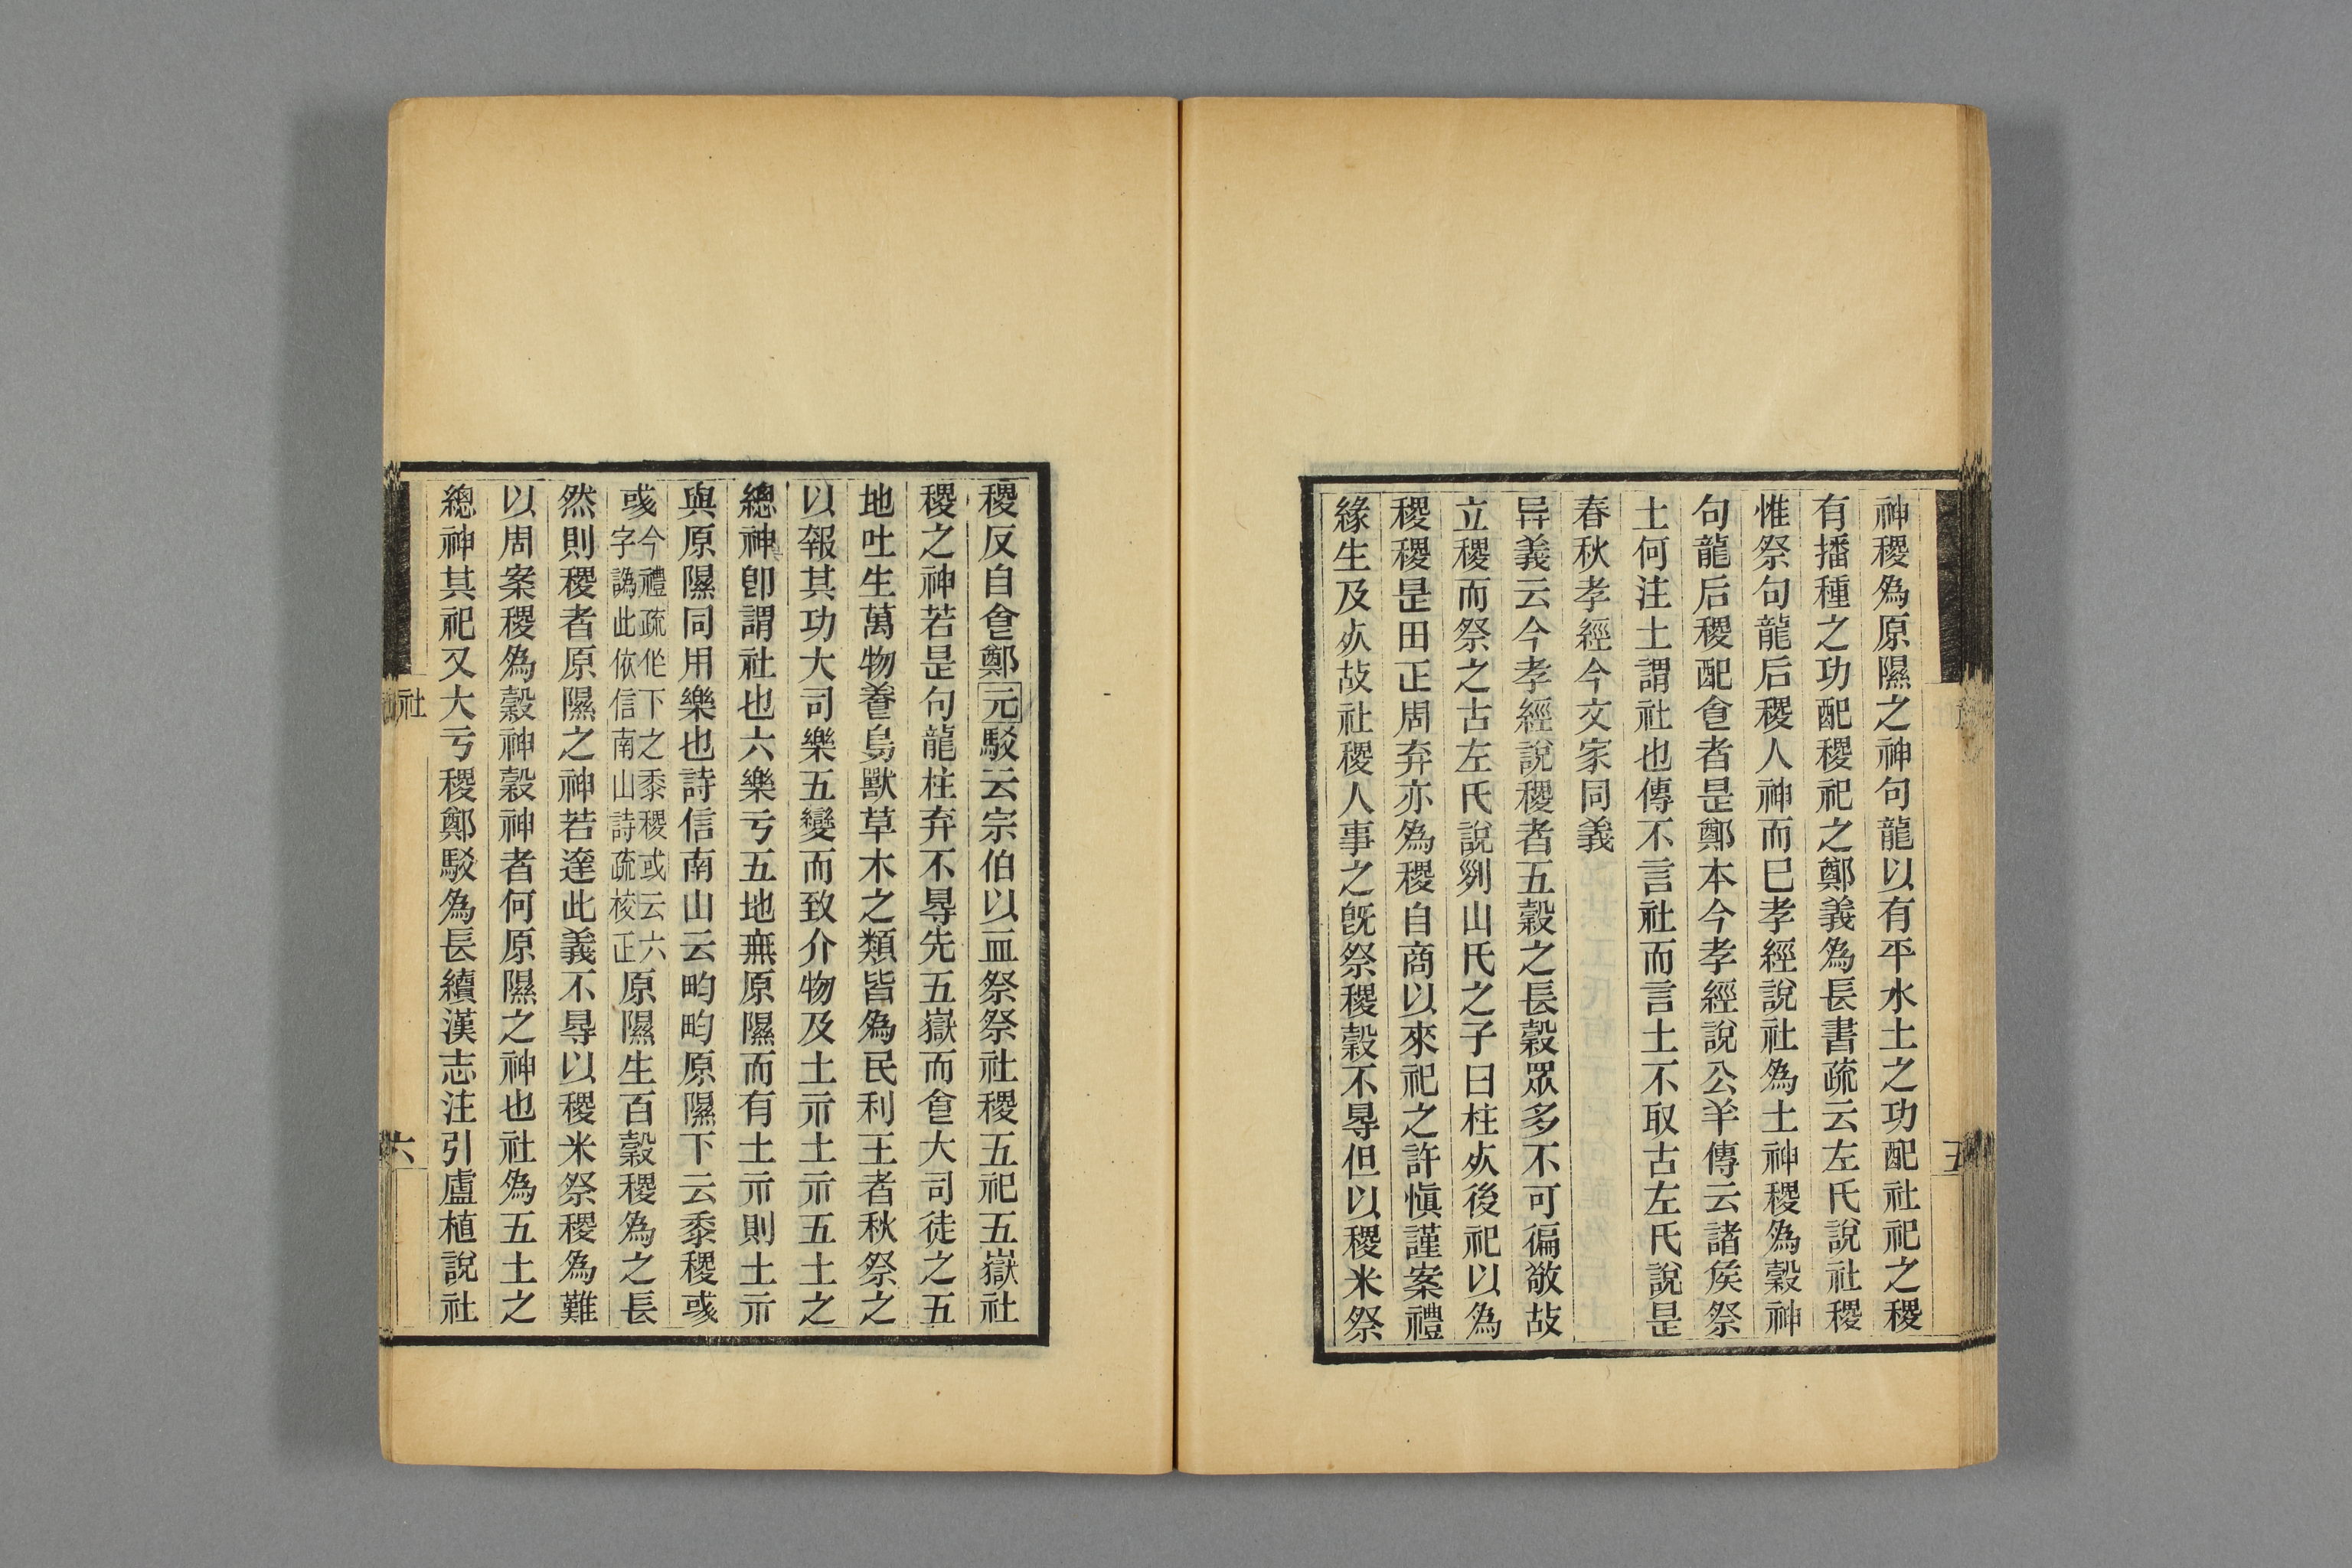 神稷為原隰之神句龍以有平水土之功配社祀之稷
有播種之功配稷祀之鄭義為長書疏云左氏說社稷
惟祭句龍后稷人神而巳孝經說社為土神稷為穀神
句龍后稷配㑹者是鄭本今孝經說公羊傳云諸矦祭
土何注土謂社也傳不言社而言土不取古左氏說是
春秋孝經今文家同義
异義云今孝經說稷者五穀之長穀眾多不可徧敬故
立稷而祭之古左氏說𠛱山氏之子曰柱𣦸後祀以為
稷稷是田正周弃亦為稷自商以來祀之許愼謹案禮
緣生及𣦸故社稷人事之旣祭稷穀不㝵但以稷米祭
稷反自㑹鄭元駁云宗伯以血祭祭社稷五祀五嶽社
稷之神若是句龍柱弃不㝵先五嶽而㑹大司徒之五
地吐生萬物養鳥獸草木之類皆為民利王者秋祭之
以報其功大司樂五變而致介物及土示土示五土之
總神卽謂社也六樂亏五地無原隰而有土示則土示
與原隰同用樂也詩信南山云畇畇原隰下云黍稷彧
彧今禮疏作下之黍稷或云六字譌此依信南山詩疏校正原隰生百穀稷為之長
然則稷者原隰之神若達此義不㝵以稷米祭稷為難
以周案稷為穀神穀神者何原隰之神也社為五土之
總神其祀又大亏稷鄭駁為長續漢志注引盧植說社
社
六